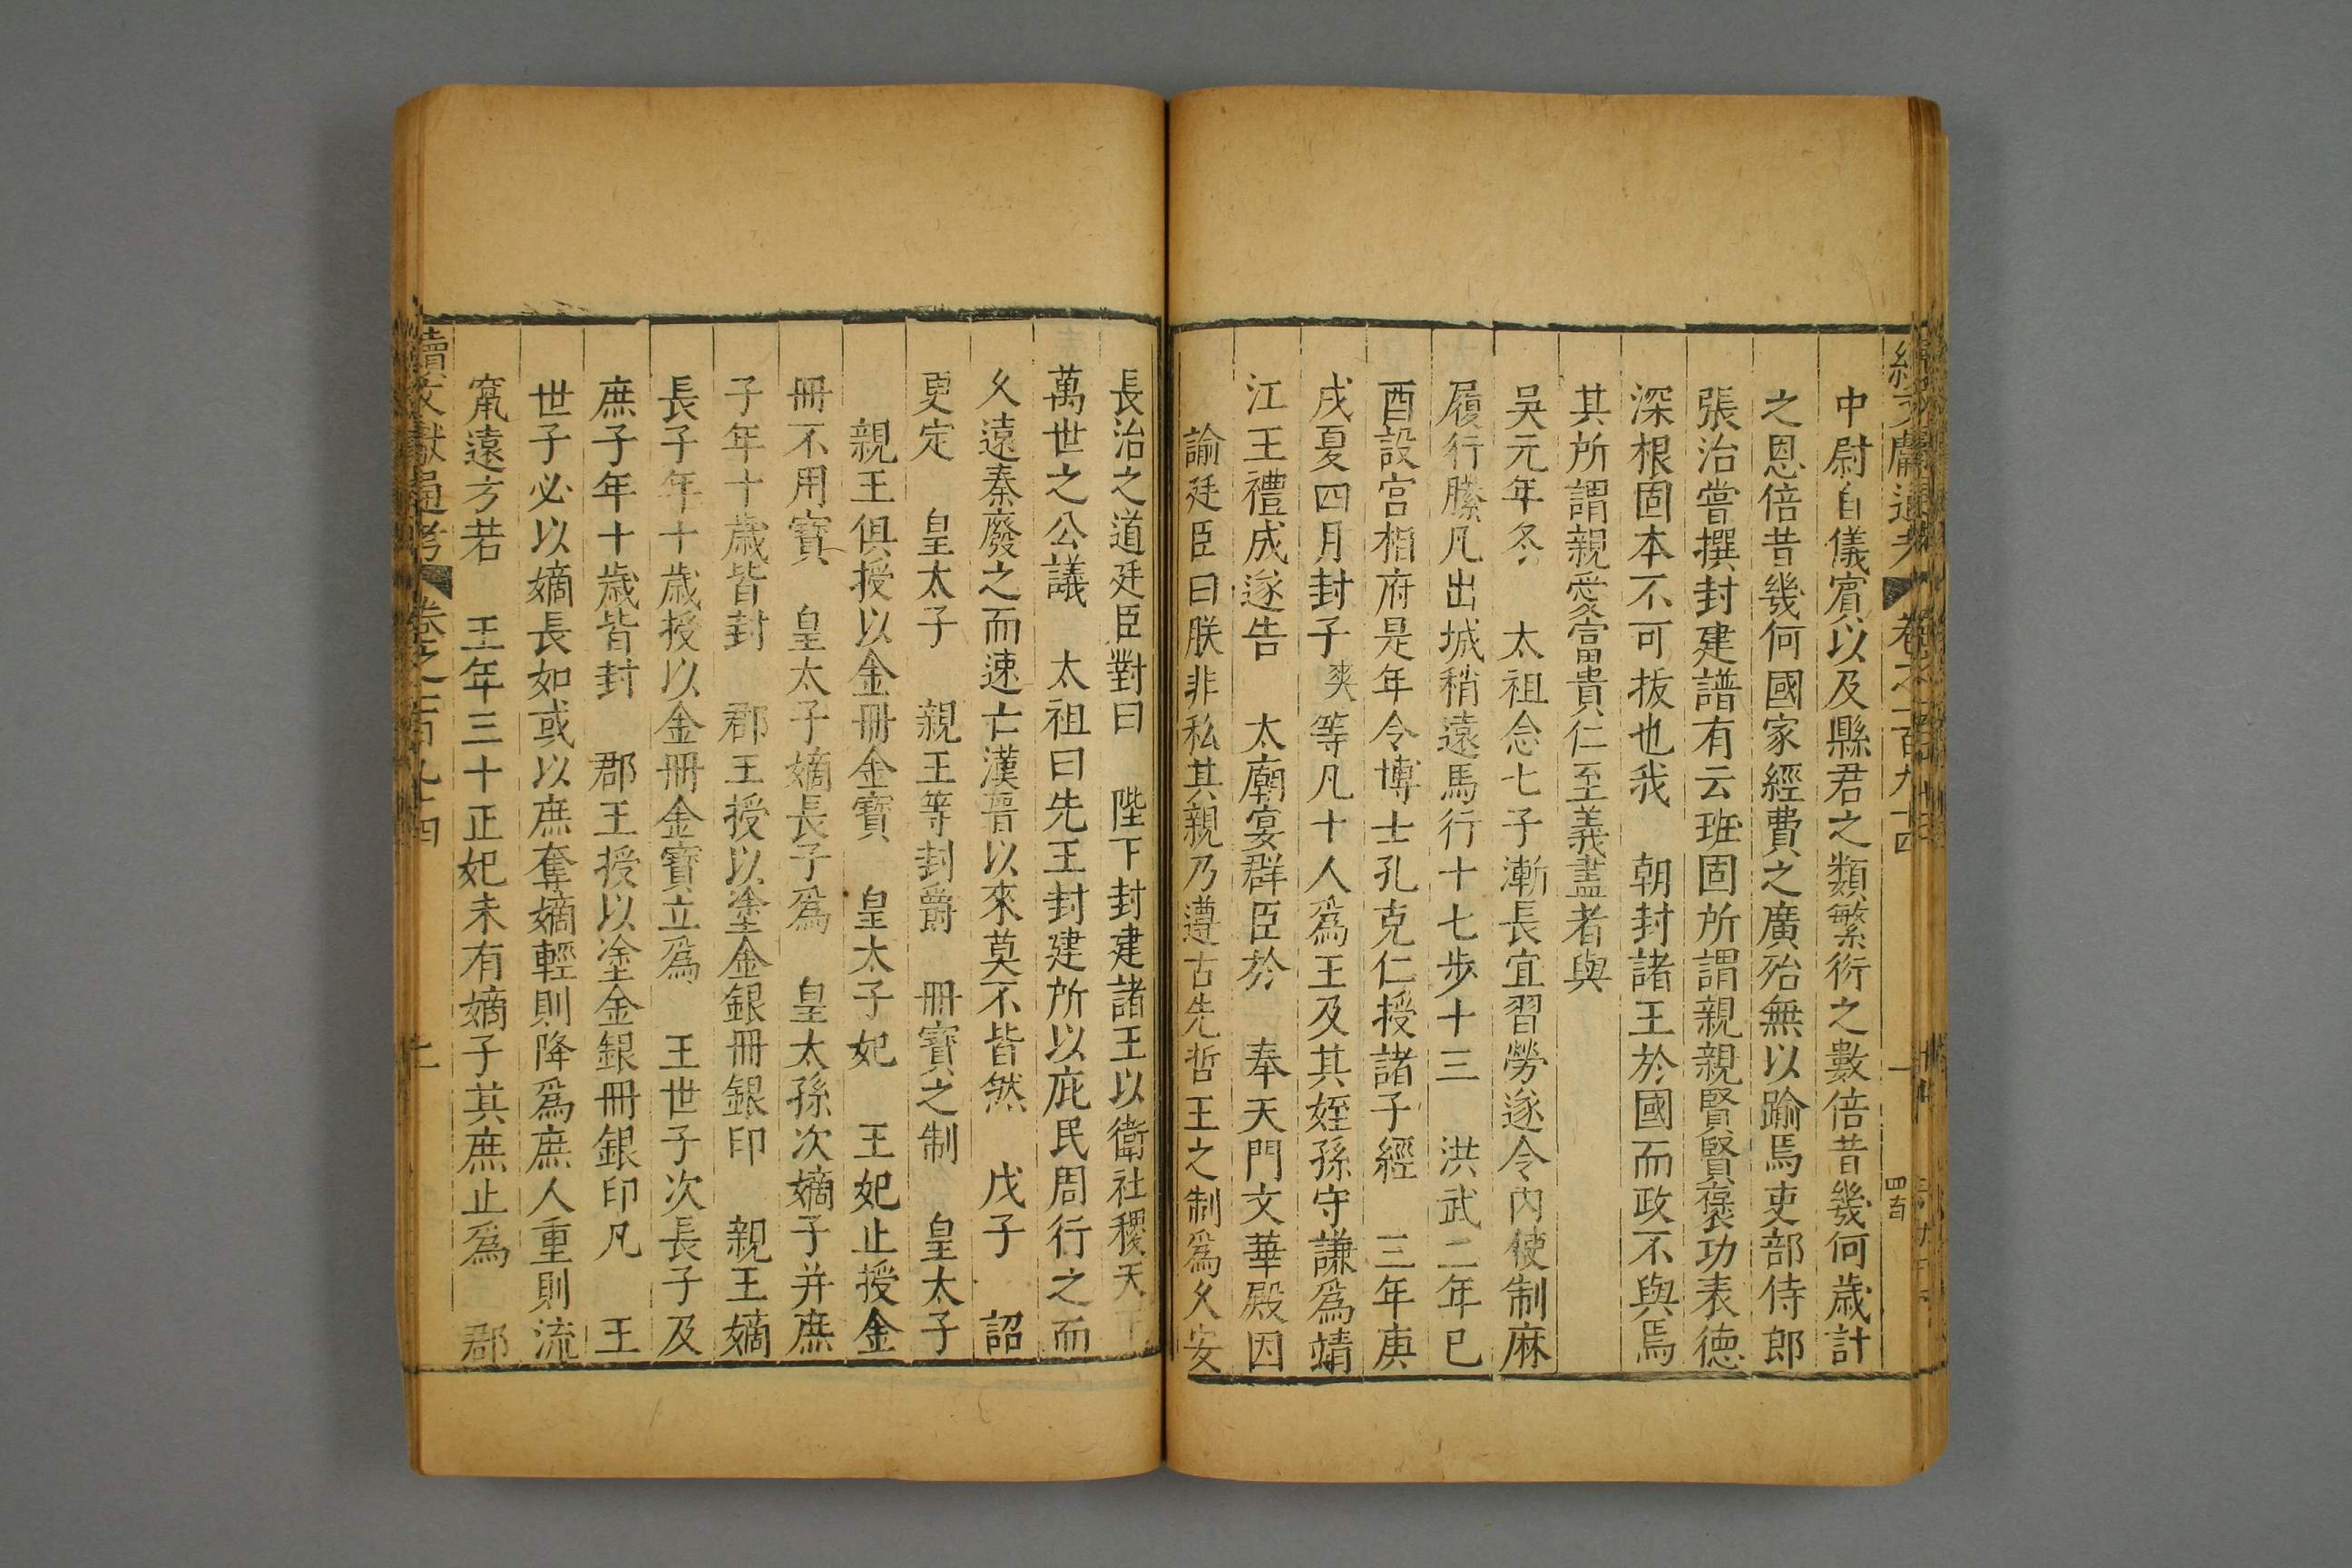 續文獻通考 卷之一百九十四 一 四百
中尉自儀賓以及縣君之類繁衍之數倍昔幾何歲計
之恩倍昔幾何國家經費之廣殆無以踰焉吏部侍郎
張治嘗撰封建譜有云班固所謂親親賢賢褒功表德
深根固本不可拔也我 朝封諸王於國而政不與焉
其所謂親愛富貴仁至義盡者與
吳元年冬 太祖念七子漸長宜習勞遂令內使制麻
履行縢凡出城稍遠馬行十七步十三 洪武二年巳
酉設宮相府是年令博士孔克仁授諸子經 三年庚
戌夏四月封子 等凡十人為王及其姪孫守謙為靖
江王禮成遂告 太廟宴群臣於 奉天門文華殿因
諭廷臣曰朕非私其親乃遵古先哲王之制為久安
長治之道廷臣對曰 陛下封建諸王以衛社稷天下
萬世之公議 太祖曰先王封建所以庇民周行之而
久遠秦廢之而速亡漢晉以來莫不皆然 戊子 詔
更定 皇太子 親王等封爵 冊寶之制 皇太子
親王俱授以金冊金寶 皇太子妃 王妃止授金
冊不用寶 皇太子嫡長子為 皇太孫次嫡子并庶
子年十歲皆封 郡王授以塗金銀冊銀印 親王嫡
長子年十歲授以金冊金寶立為 王世子次長子及
庶子年十歲皆封 郡王授以塗金銀冊銀印凡 王
世子必以嫡長如或以庶奪嫡輕則降為庶人重則流
竄遠方若 王年三十正妃未有嫡子其庶止為 郡
續文獻通考 卷之一百九十四